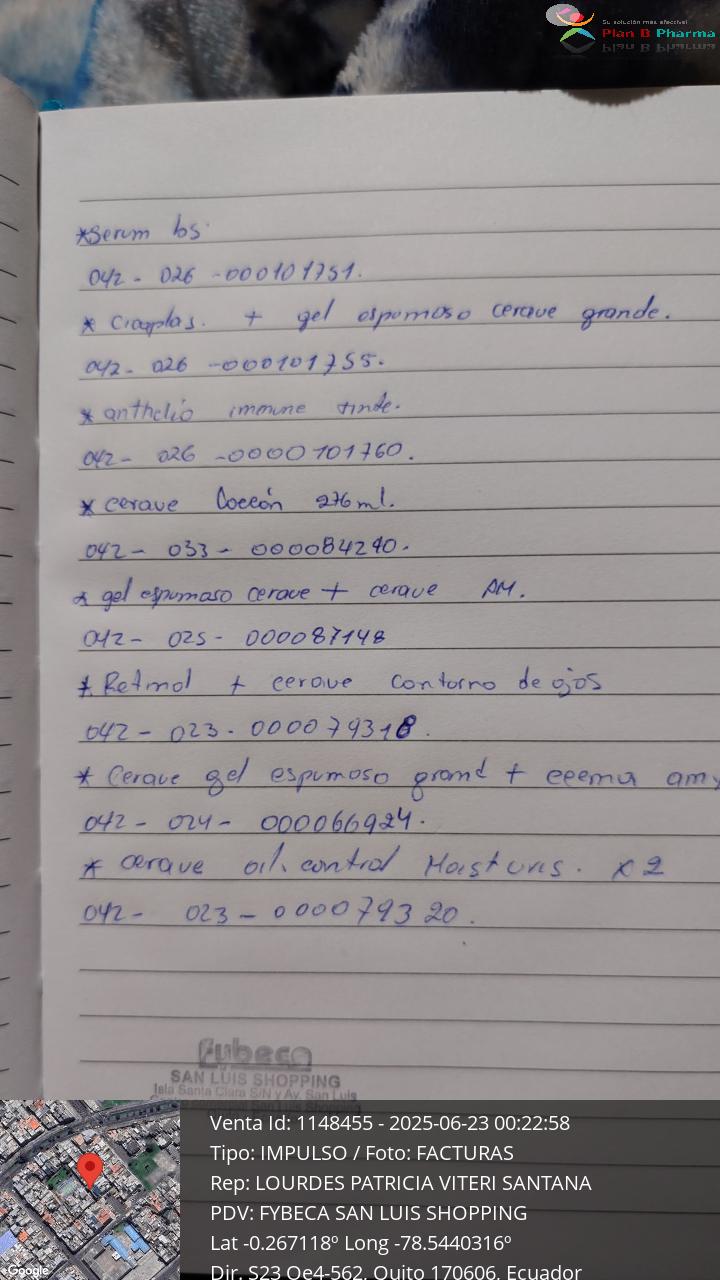 Su solución más efectiva!
Plan B Pharma
*Serum bs.
042 - 026 - 000101751.
* Cicaplas. + gel espumoso cerave grande.
042 - 026 - 000101755.
* anthelio immune tinde.
042 - 026 - 0000101760.
* cerave Loccón 276 ml.
042 - 033 - 000084240.
* gel espumaso cerave + cerave AM.
042 - 025 - 000087148
* Retinol + cerave contorno de ojos
042 - 023 - 000079318.
* Cerave gel espumoso grand +
042 - 024 - 000066924.
* cerave oil control Moisturis. x 2
042 - 023 - 000079320.
fybeca
SAN LUIS SHOPPING
Isla Santa Clara S/N y Av. San Luis
San Luis Shopping
Venta Id: 1148455 - 2025-06-23 00:22:58
Tipo: IMPULSO / Foto: FACTURAS
Rep: LOURDES PATRICIA VITERI SANTANA
PDV: FYBECA SAN LUIS SHOPPING
Lat -0.267118º Long -78.5440316º
Dir. S23 Oe4-562, Quito 170606, Ecuador
Google